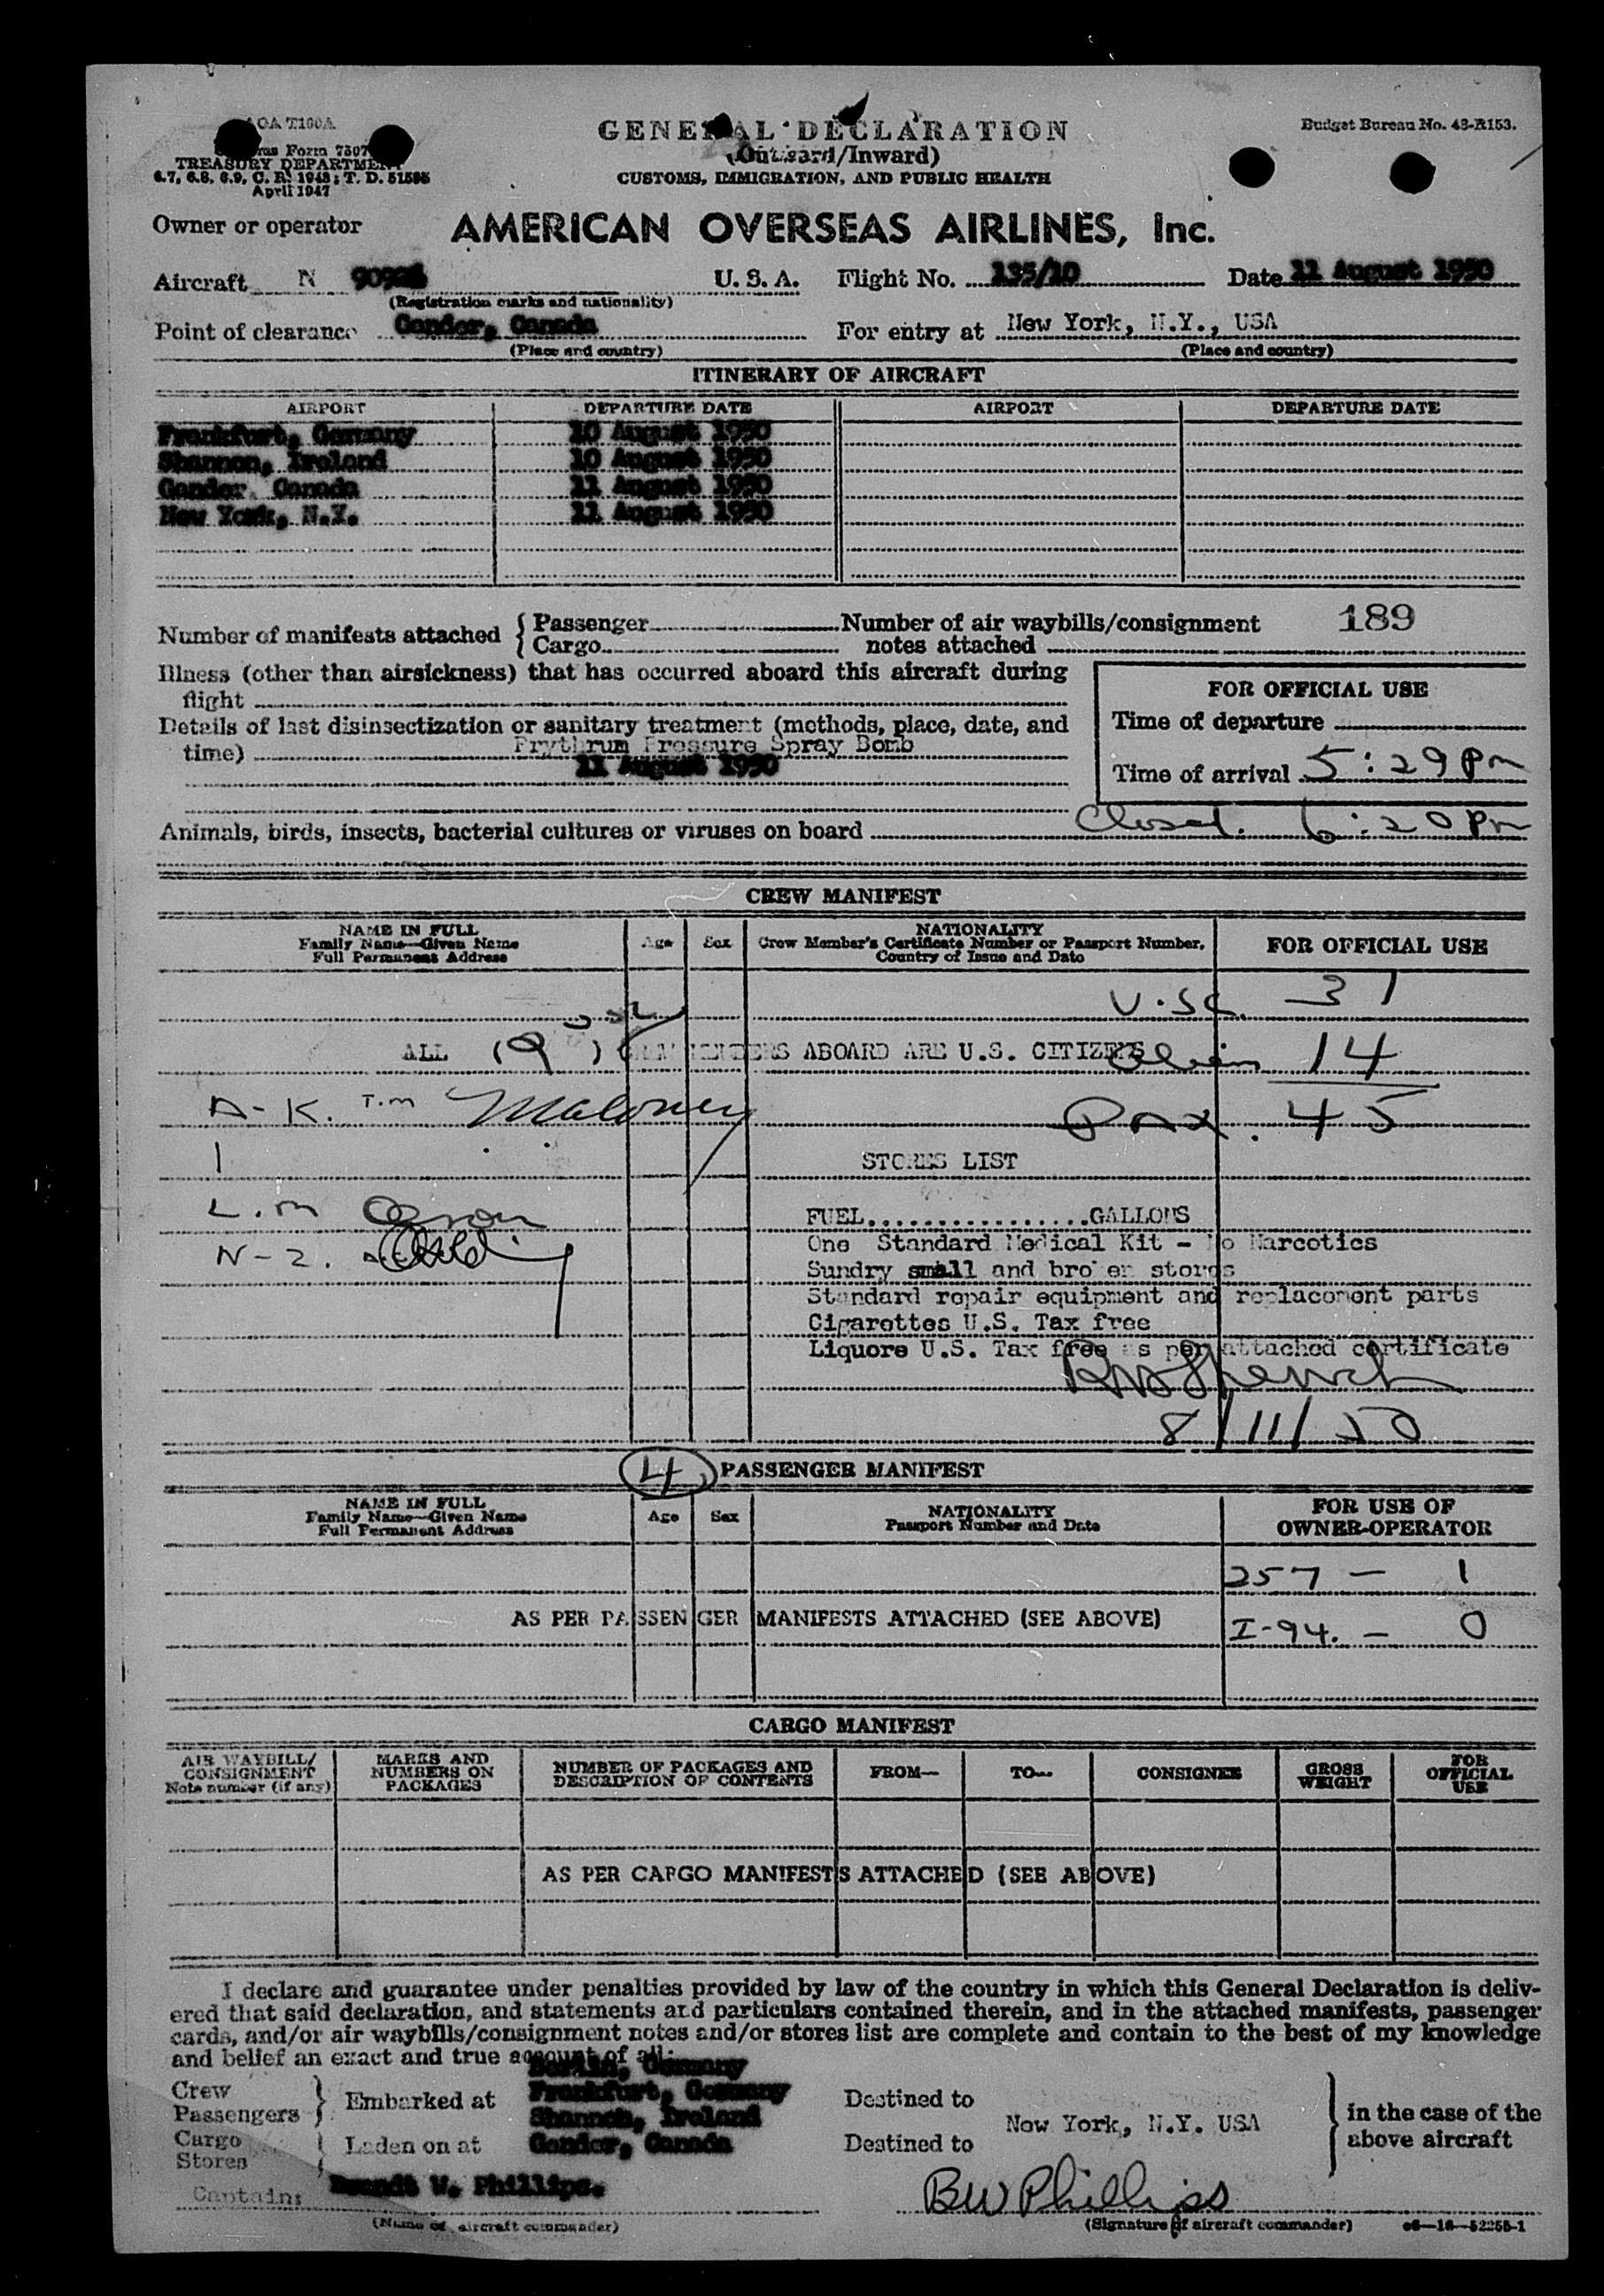 AOA T100A
Customs Form 7507
TREASURY DEPARTMENT
6.7, 6.8, 6.9, C. R. 1943; T. D. 51595
April 1947
GENERAL DECLARATION
(Outward/Inward)
CUSTOMS, IMMIGRATION, AND PUBLIC HEALTH
Budget Bureau No. 43-R153.
Owner or operator AMERICAN OVERSEAS AIRLINES, Inc.
Aircraft N U. S. A. Flight No. 135/10 Date 11 August 1950
(Registration marks and nationality)
Point of clearance Gander, Canada For entry at New York, N.Y., USA
(Place and country) (Place and country)
ITINERARY OF AIRCRAFT
AIRPORT DEPARTURE DATE AIRPORT DEPARTURE DATE
Frankfurt, Germany 10 August 1950
Shannon, Ireland 10 August 1950
Gander, Canada 11 August 1950
New York, N.Y. 11 August 1950
Number of manifests attached { Passenger Number of air waybills/consignment 189
Cargo notes attached
Illness (other than airsickness) that has occurred aboard this aircraft during
flight
FOR OFFICIAL USE
Details of last disinsectization or sanitary treatment (methods, place, date, and
time) Prythrum Pressure Spray Bomb
11 August 1950
Time of departure
Time of arrival 5:29 Pm
Animals, birds, insects, bacterial cultures or viruses on board Closed. 6:20 Pm
CREW MANIFEST
NAME IN FULL
Family Name—Given Name
Full Permanent Address
Age Sex
NATIONALITY
Crew Member's Certificate Number or Passport Number,
Country of Issue and Date
FOR OFFICIAL USE
U.Sc. 31
ALL (9) CREW MEMBERS ABOARD ARE U.S. CITIZENS
Alien 14
A-K. T.m Maloney
Pax. 45
STORES LIST
L.m
FUEL................GALLONS
N-Z.
One Standard Medical Kit - No Narcotics
Sundry small and broken stores
Standard repair equipment and replacement parts
Cigarettes U.S. Tax free
Liquore U.S. Tax free as per attached certificate
8/11/50
4 PASSENGER MANIFEST
NAME IN FULL
Family Name—Given Name
Full Permanent Address
Age Sex
NATIONALITY
Passport Number and Date
FOR USE OF
OWNER-OPERATOR
257 — 1
AS PER PASSENGER MANIFESTS ATTACHED (SEE ABOVE)
I-94. — 0
CARGO MANIFEST
AIR WAYBILL/
CONSIGNMENT
Note number (if any)
MARKS AND
NUMBERS ON
PACKAGES
NUMBER OF PACKAGES AND
DESCRIPTION OF CONTENTS
FROM— TO— CONSIGNEE
GROSS
WEIGHT
FOR
OFFICIAL
USE
AS PER CARGO MANIFESTS ATTACHED (SEE ABOVE)
I declare and guarantee under penalties provided by law of the country in which this General Declaration is deliv-
ered that said declaration, and statements and particulars contained therein, and in the attached manifests, passenger
cards, and/or air waybills/consignment notes and/or stores list are complete and contain to the best of my knowledge
and belief an exact and true account of all:
Berlin, Germany
Crew
Passengers } Embarked at Frankfurt, Germany Destined to
Shannon, Ireland New York, N.Y. USA
Cargo
Stores } Laden on at Gander, Canada Destined to
in the case of the
above aircraft
Captain: W. Phillips. BW Phillips
(Name of aircraft commander) (Signature of aircraft commander) c6—16—52255-1